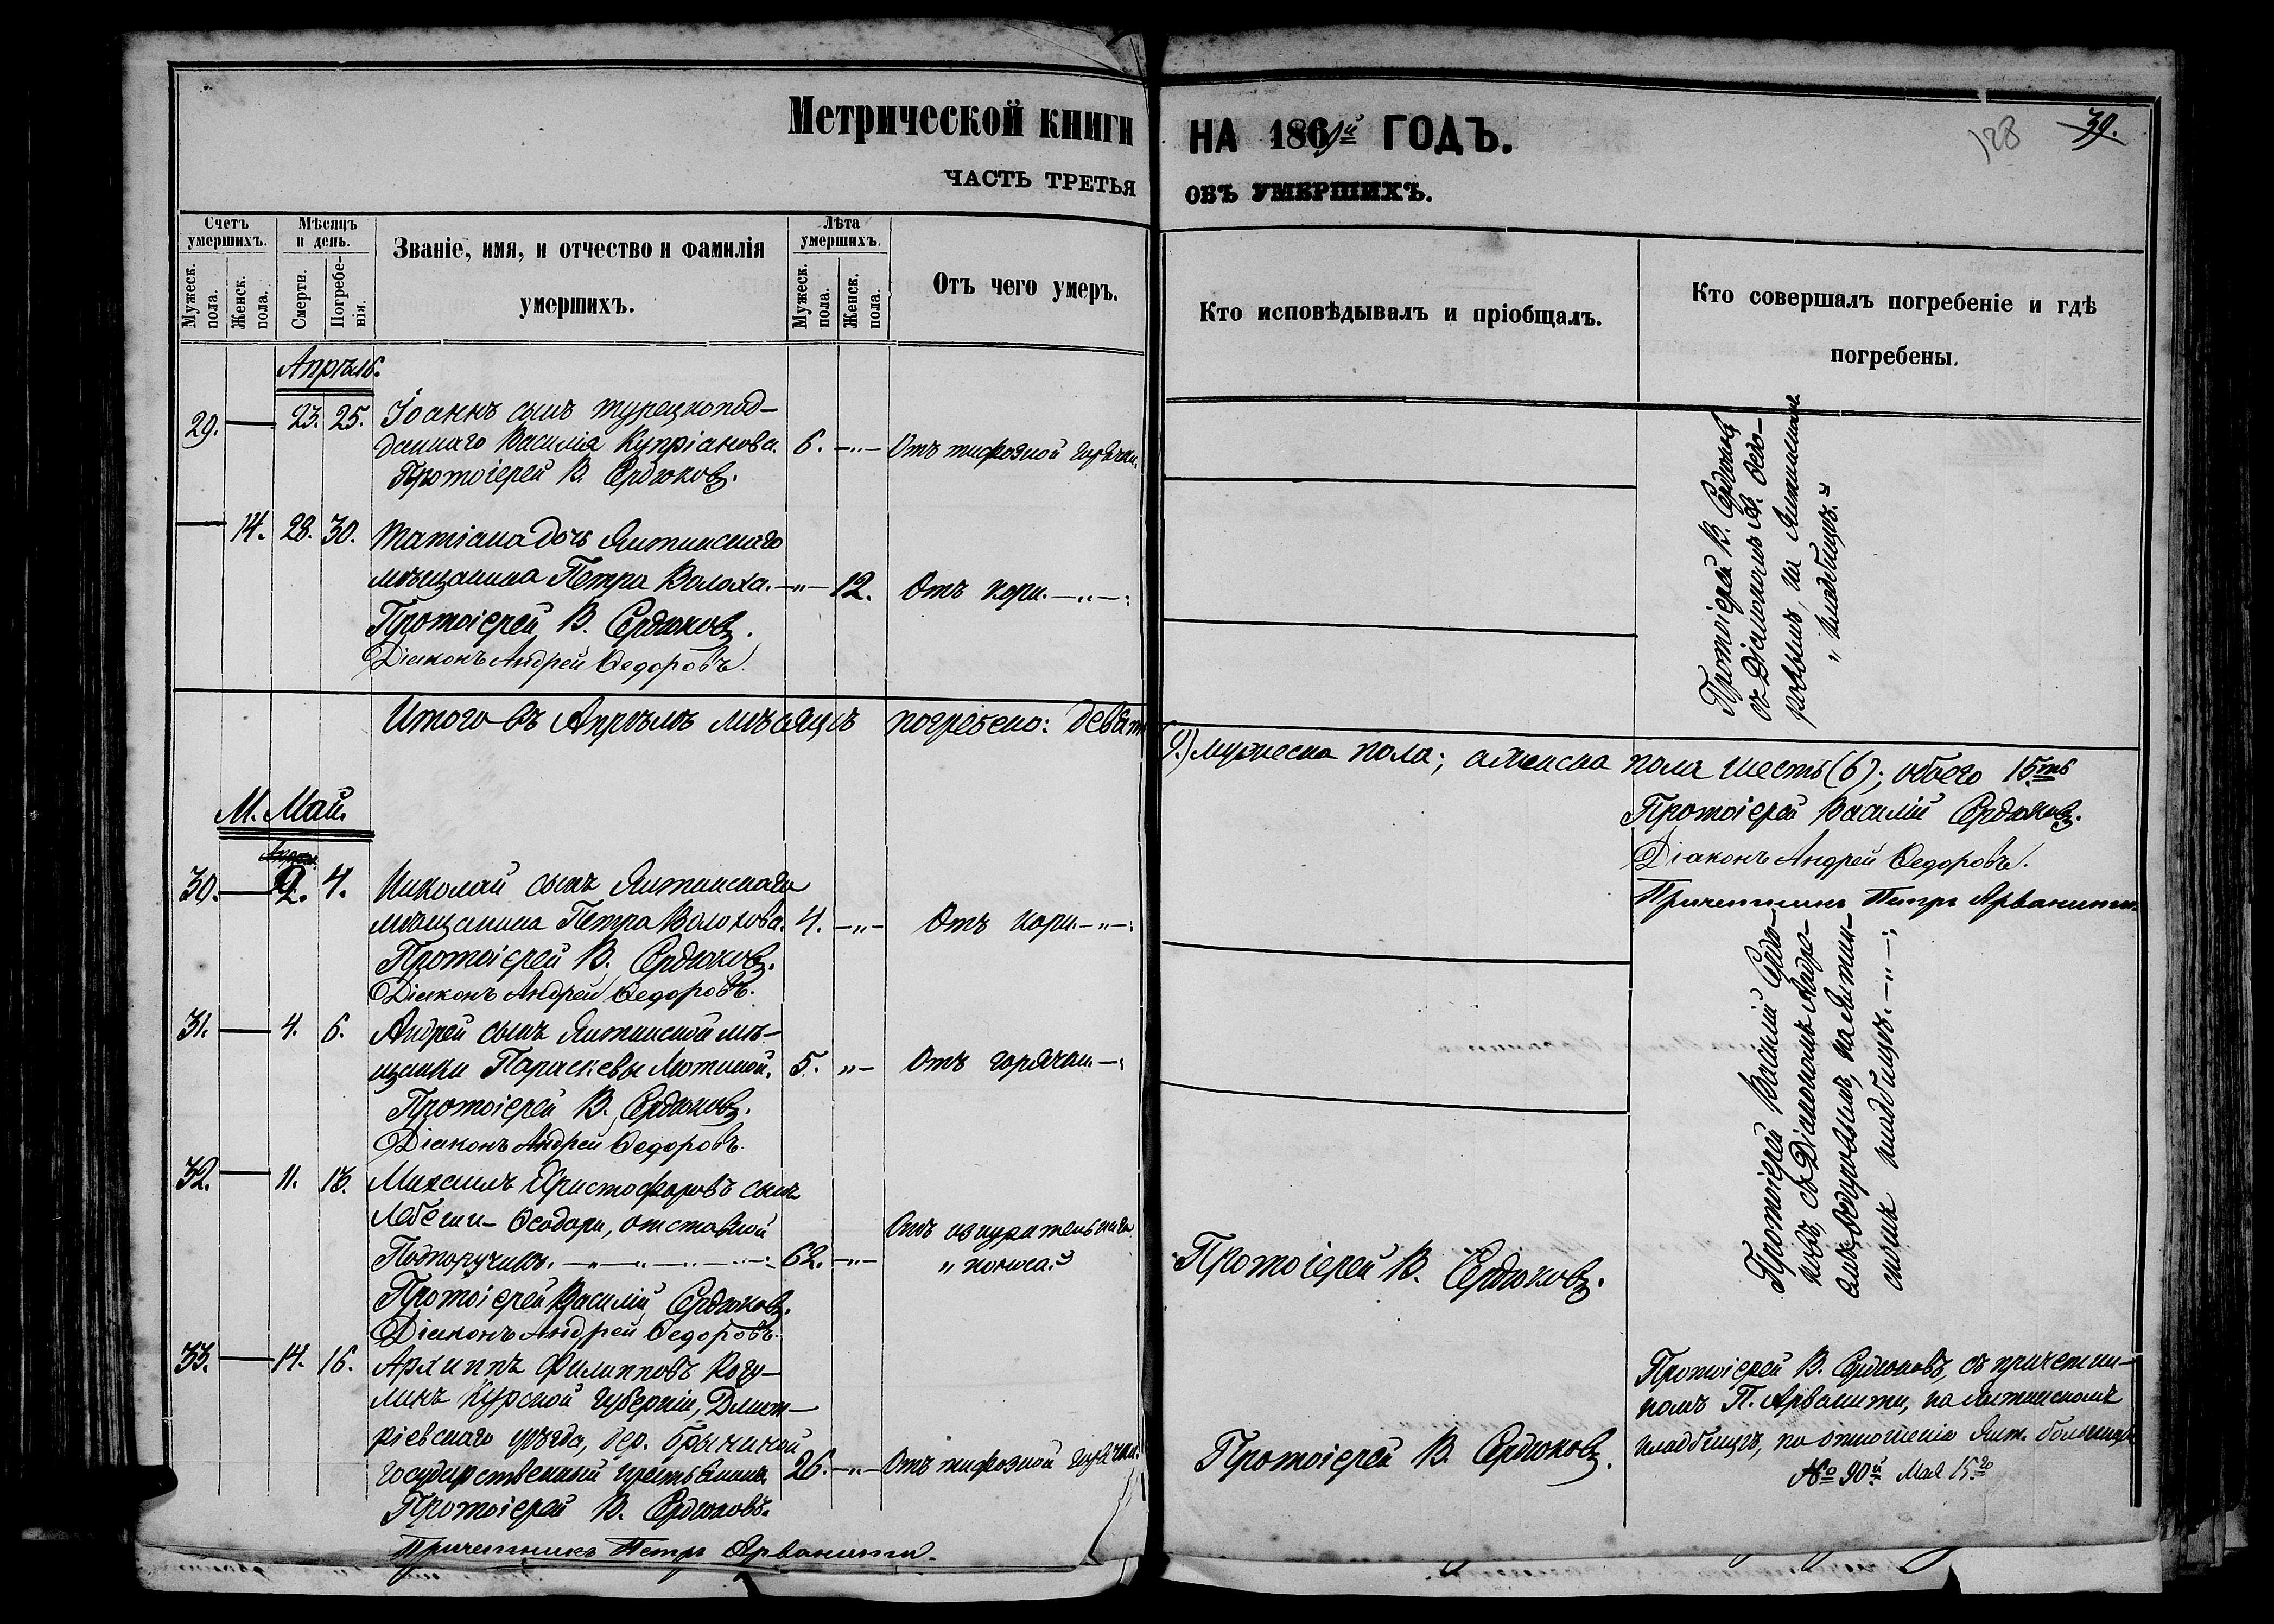 Метрической книги
НА 1869й ГОДЪ.
128
39.
ЧАСТЬ ТРЕТЬЯ
ОБЪ УМЕРШИХЪ.
Счетъ умершихъ.
Мужеск. пола.
Женск. пола.
Мѣсяцъ и день.
Смерти.
Погребе-
нія.
Званіе, имя, и отчество и фамилія
умершихъ.
Лѣта умершихъ.
Мужеск. пола.
Женск. пола.
Отъ чего умеръ.
Кто исповѣдывалъ и пріобщалъ.
Кто совершалъ погребеніе и гдѣ
погребены.
Апрѣль.
29. 23. 25. Іоаннъ сынъ турецкопод-
даннаго Василія Купріанова. 6. Отъ тифозной горячки.
Протоіерей В. Сердюковъ.
14. 28. 30. Татіана дочь Ялтинскаго
мѣщанина Петра Волоха. 12. Отъ кори.
Протоіерей В. Сердюковъ.
Діаконъ Андрей Ѳедоровъ.
Протоіерей В. Сердюковъ
съ Діакономъ А. Ѳедо-
ровымъ, на Ялтинскомъ
кладбищѣ.
Итого въ Апрѣлѣ мѣсяцѣ погребено: девять
(9.) мужеска пола; а женска пола шесть (6); обоего 15ть
Протоіерей Василій Сердюковъ.
Діаконъ Андрей Ѳедоровъ.
Причетникъ Петръ Арванити.
М. Май.
30. 2. 4. Николай сынъ Ялтинскаго
мѣщанина Петра Волохова. 4. Отъ кори.
Протоіерей В. Сердюковъ.
Діаконъ Андрей Ѳедоровъ.
31. 4. 6. Андрей сынъ Ялтинской мѣ-
щанки Параскевы Лютиной. 5. Отъ горячки.
Протоіерей В. Сердюковъ.
Діаконъ Андрей Ѳедоровъ.
32. 11. 13. Михаилъ Христофоровъ сынъ
Ѳеодори, отставной
Подпоручикъ. 62. Отъ изнурительнаго
поноса.
Протоіерей Василій Сердюковъ.
Діаконъ Андрей Ѳедоровъ.
Протоіерей В. Сердюковъ.
Протоіерей Василій Сердю-
ковъ, съ Діакономъ Андре-
емъ Ѳедоровымъ, на Ялтин-
скомъ кладбищѣ.
33. 14. 16. Архиппъ Филипповъ
Курской губерніи, Дмит-
ріевскаго уѣзда, дер.
государственный крестьянинъ. 26. Отъ тифозной горячки.
Протоіерей В. Сердюковъ.
Причетникъ Петръ Арванити.
Протоіерей В. Сердюковъ.
Протоіерей В. Сердюковъ, съ причетни-
комъ П. Арванити, на Ялтинскомъ
кладбищѣ, по отношенію Ялт. больницы
№ 90й Мая 15го